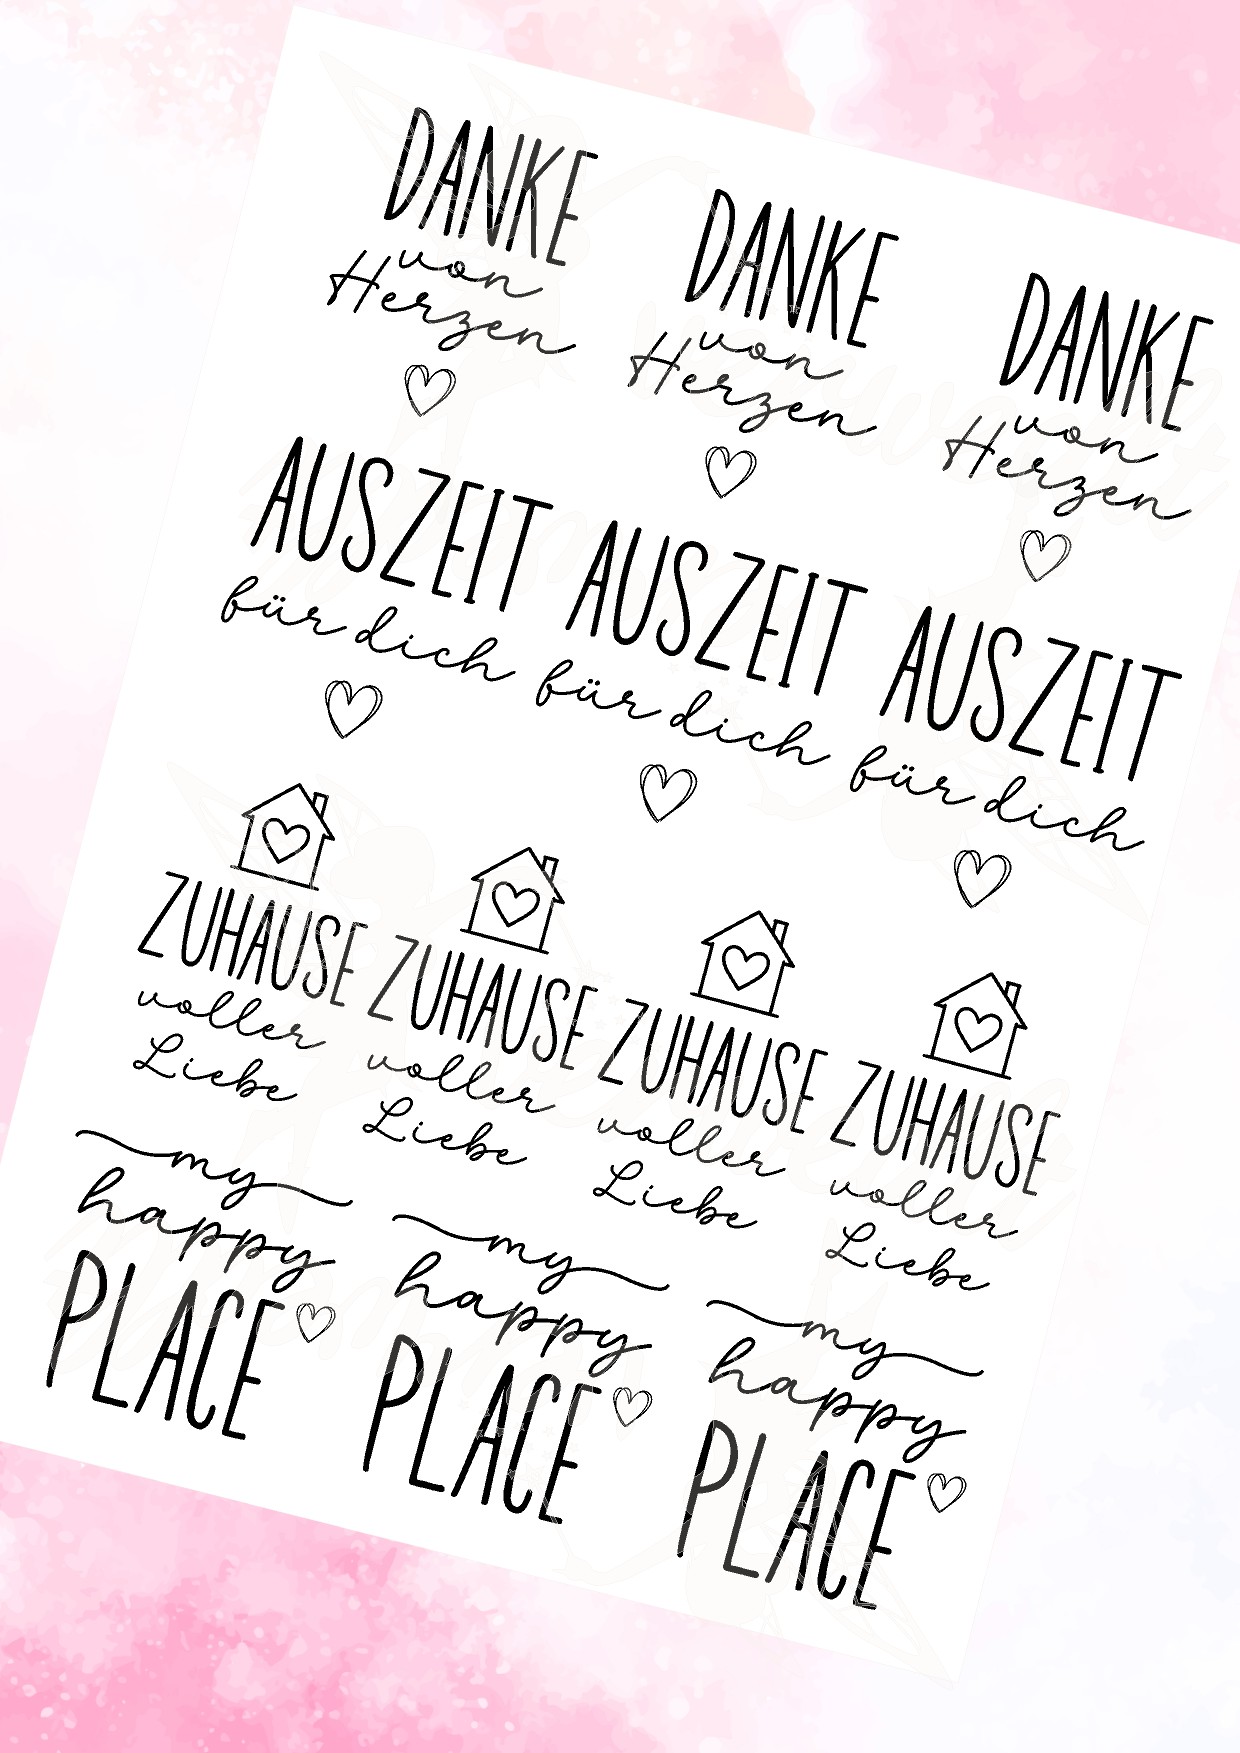 DANKE
von
Herzen
DANKE
von
Herzen
DANKE
von
Herzen
AUSZEIT
für dich
AUSZEIT
für dich
AUSZEIT
für dich
ZUHAUSE
voller
Liebe
ZUHAUSE
voller
Liebe
ZUHAUSE
voller
Liebe
ZUHAUSE
voller
Liebe
my
happy
PLACE
my
happy
PLACE
my
happy
PLACE